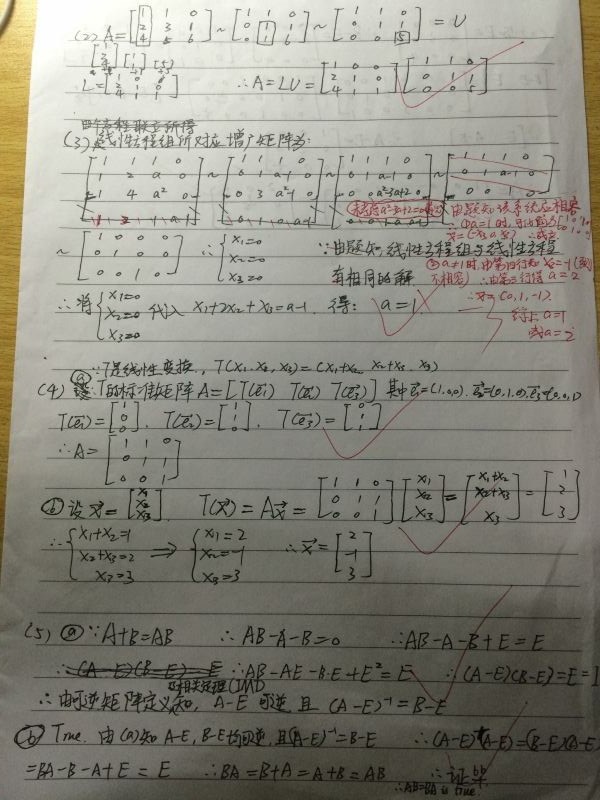 (2) A = [1 1 0; 2 3 1; 4 5 6] ~ [1 1 0; 0 1 1; 0 1 6] ~ [1 1 0; 0 1 1; 0 0 5] = U
L = [1 0 0; 2 1 0; 4 1 1] ∴A = LU = [1 0 0; 2 1 0; 4 1 1] [1 1 0; 0 1 1; 0 0 5]
(3) 线性方程组所对应增广矩阵为:
[1 1 1 0; 1 2 a 0; 1 4 a² 0; 1 2 1 a-1] ~ [1 1 1 0; 0 1 a-1 0; 0 3 a²-1 0; 0 1 0 a-1] ~ [1 1 1 0; 0 1 a-1 0; 0 0 a²-3a+2 0; 0 1 0 a-1] ~
~ [1 1 1 0; 0 1 0 0; 0 0 1 0] ∴ { x₁=0 x₂=0 x₃=0 ∵由题知线性方程组与线性方程
有相同的解
∴将 { x₁=0 x₂=0 x₃=0 代入 x₁+2x₂+x₃=a-1. 得: a=1
由题知该系统应相容
x₂=-1
不相容) ∴由第三行得 a=2
∴x=(0,1,-1)
综上 a=1
或a=2
∵T是线性变换, T(x₁,x₂,x₃)=(x₁+x₂, x₂+x₃, x₃)
(4) ⓐ T的标准矩阵 A=[T(e₁) T(e₂) T(e₃)] 其中e₁=(1,0,0). e₂=(0,1,0). e₃=(0,0,1)
T(e₁)=[1; 0; 0]. T(e₂)=[1; 1; 0]. T(e₃)=[0; 1; 1]
∴A=[1 1 0; 0 1 1; 0 0 1]
ⓑ 设x=[x₁; x₂; x₃] T(x)=Ax=[1 1 0; 0 1 1; 0 0 1] [x₁; x₂; x₃] = [x₁+x₂; x₂+x₃; x₃] = [1; 2; 3]
∴ { x₁+x₂=1 x₂+x₃=2 x₃=3 ⇒ { x₁=2 x₂=-1 x₃=3 ∴x=[2; -1; 3]
(5) ⓐ ∵A+B=AB ∴AB-A-B=0 ∴AB-A-B+E=E
∴(A-E)(B-E)=E ∴AB-AE-BE+E²=E ∴(A-E)(B-E)=E=I
及相关定理(IMD)
∴由可逆矩阵定义知, A-E可逆且 (A-E)⁻¹=B-E
ⓑ True. 由(a)知 A-E, B-E均可逆, 且(A-E)⁻¹=B-E ∴(A-E)⁻¹(A-E)=(B-E)(A-E)
=BA-B-A+E=E ∴BA=B+A=A+B=AB ∴证毕
∴AB=BA is true.